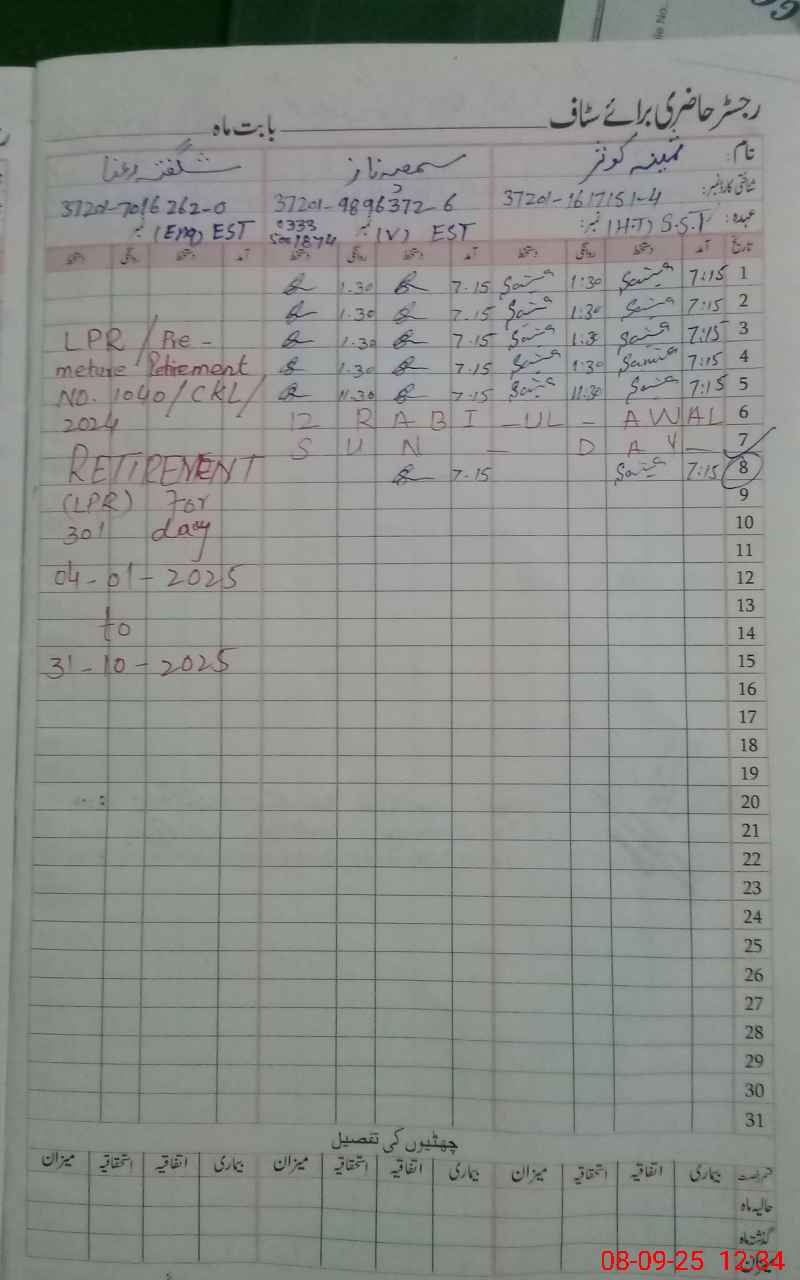 رجسٹر حاضری برائے سٹاف بابت ماہ
نام: ثمینہ کوثر سمعیہ ناز شگفتہ رعنا
شناختی کارڈ نمبر: 37201-1617151-4 37201-9896372-6 37201-7016262-0
عہدہ: (H.T) S.S.T نمبر: (V) EST نمبر 0333 (Eng) EST نمبر
تاریخ آمد دستخط روانگی دستخط آمد دستخط روانگی دستخط آمد دستخط روانگی دستخط
1 7:15 1:30 7.15 1.30
2 7:15 1:30 7.15 1.30
3 7:15 1:30 7.15 1.30
4 7:15 1:30 7.15 1.30
5 7:15 11:30 7.15 11.30
6 12 RABI-UL-AWAL
7 SUN-DAY
8 7:15 7.15
9
10
11
12
13
14
15
16
17
18
19
20
21
22
23
24
25
26
27
28
29
30
31
LPR / Pre-
meture Retirement
NO. 1040/CKL/
2024
RETIREMENT
(LPR) For
301 day
04-01-2025
to
31-10-2025
چھٹیوں کی تفصیل
بیماری اتفاقیہ استحقاقیہ میزان بیماری اتفاقیہ استحقاقیہ میزان بیماری اتفاقیہ استحقاقیہ میزان
حالیہ ماہ
گذشتہ ماہ
میزان
08-09-25 12:34